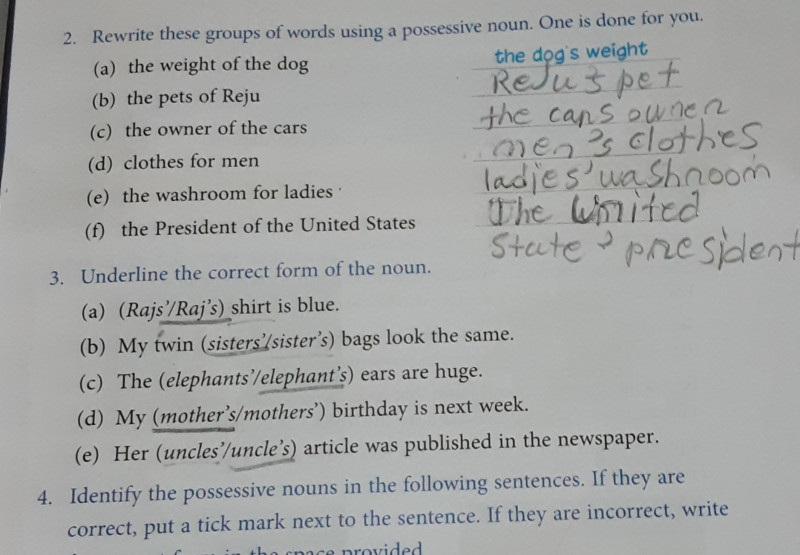 2. Rewrite these groups of words using a possessive noun. One is done for you.
(a) the weight of the dog the dog's weight
(b) the pets of Reju Reju's pet
(c) the owner of the cars the cars owner
(d) clothes for men men's clothes
(e) the washroom for ladies ladies' washroom
(f) the President of the United States The United
State's president
3. Underline the correct form of the noun.
(a) (Rajs'/Raj's) shirt is blue.
(b) My twin (sisters'/sister's) bags look the same.
(c) The (elephants'/elephant's) ears are huge.
(d) My (mother's/mothers') birthday is next week.
(e) Her (uncles'/uncle's) article was published in the newspaper.
4. Identify the possessive nouns in the following sentences. If they are
correct, put a tick mark next to the sentence. If they are incorrect, write
in the space provided